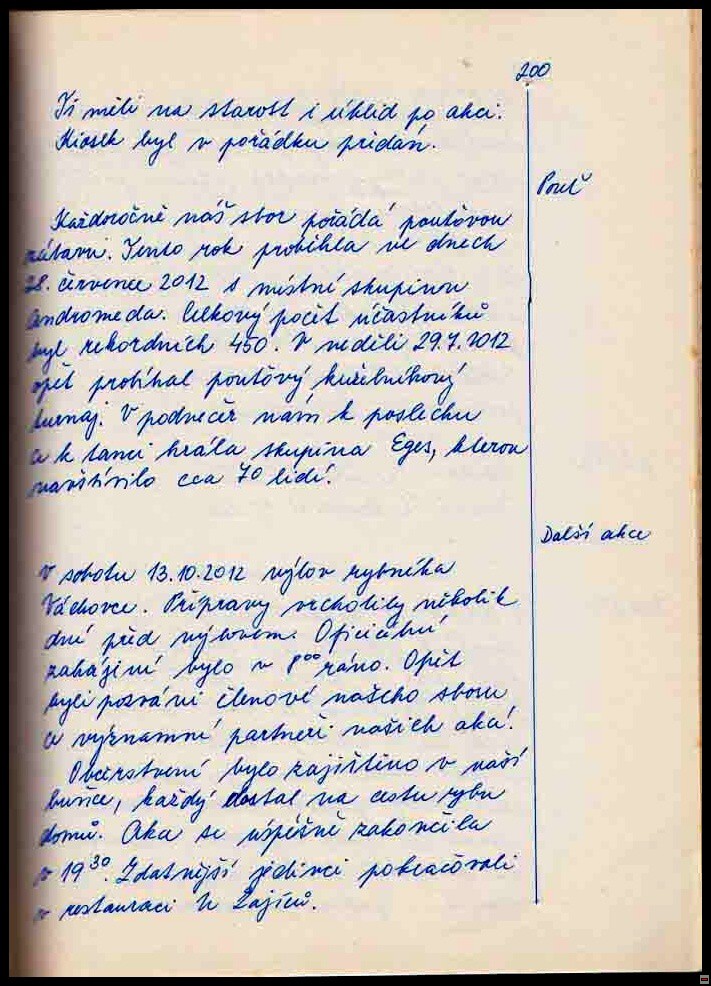 200
Ti měli na starost i úklid po akci.
Kiosek byl v pořádku předán.
Pouť
Každoročně náš sbor pořádá pouťovou
zábavu. Tento rok proběhla ve dnech
28. července 2012 s místní skupinou
Andromeda. Celkový počet účastníků
byl rekordních 450. V neděli 29.7.2012
opět probíhal pouťový kuželníkový
turnaj. V podvečer nám k poslechu
a k tanci hrála skupina Eges, kterou
navštívilo cca 70 lidí.
Další akce
V sobotu 13.10.2012 výlov rybníka
Váchovce. Přípravy vrcholily několik
dní před výlovem. Oficiální
zahájení bylo v 8⁰⁰ ráno. Opět
byli pozváni členové našeho sboru
a významní partneři našich akcí.
Občerstvení bylo zajištěno v naší
buňce, každý dostal na cestu rybu
domů. Akce se úspěšně zakončila
v 19³⁰. Zdatnější jedinci pokračovali
v restauraci U Zajíců.